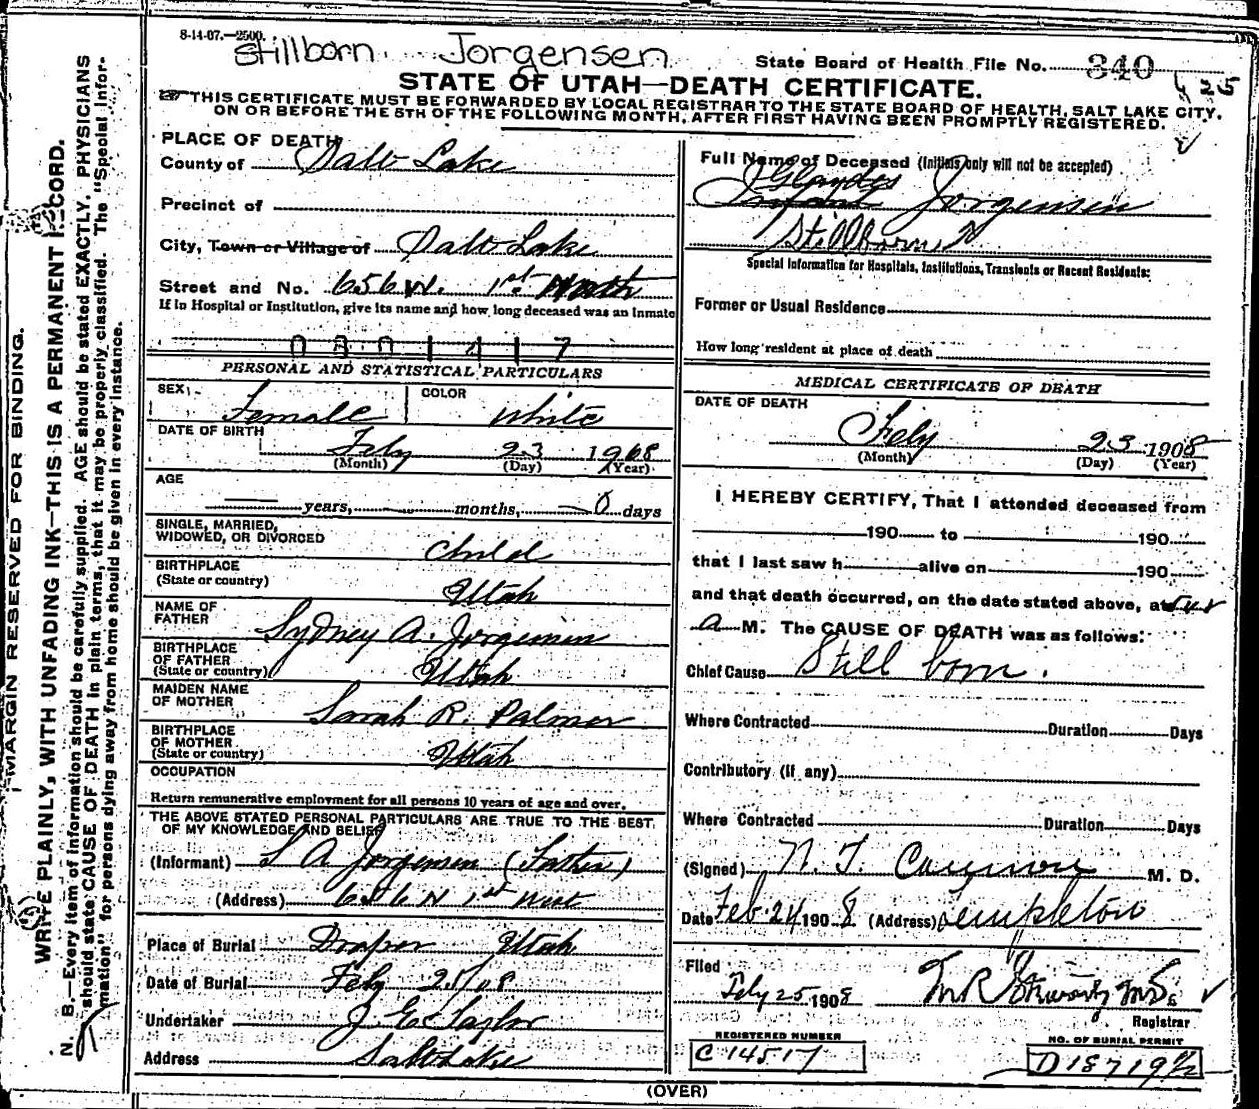 8-14-07.—2500.
Stillborn Jorgensen
State Board of Health File No. 340
25
STATE OF UTAH—DEATH CERTIFICATE.
THIS CERTIFICATE MUST BE FORWARDED BY LOCAL REGISTRAR TO THE STATE BOARD OF HEALTH, SALT LAKE CITY,
ON OR BEFORE THE 5TH OF THE FOLLOWING MONTH, AFTER FIRST HAVING BEEN PROMPTLY REGISTERED.
MARGIN RESERVED FOR BINDING.
WRITE PLAINLY, WITH UNFADING INK—THIS IS A PERMANENT RECORD.
N. B.—Every item of information should be carefully supplied. AGE should be stated EXACTLY. PHYSICIANS
should state CAUSE OF DEATH in plain terms, that it may be properly classified. The "Special Infor-
mation" for persons dying away from home should be given in every instance.
PLACE OF DEATH
County of Salt Lake
Precinct of
City, Town or Village of Salt Lake
Street and No. 656 W. 1st North
If in Hospital or Institution, give its name and how long deceased was an Inmate
PERSONAL AND STATISTICAL PARTICULARS
SEX Female COLOR White
DATE OF BIRTH Feby 23 1908
(Month) (Day) (Year)
AGE
years, months, 0 days
SINGLE, MARRIED,
WIDOWED, OR DIVORCED Child
BIRTHPLACE
(State or country) Utah
NAME OF
FATHER Sydney A. Jorgensen
BIRTHPLACE
OF FATHER
(State or country) Utah
MAIDEN NAME
OF MOTHER Sarah R. Palmer
BIRTHPLACE
OF MOTHER
(State or country) Utah
OCCUPATION
Return remunerative employment for all persons 10 years of age and over.
THE ABOVE STATED PERSONAL PARTICULARS ARE TRUE TO THE BEST
OF MY KNOWLEDGE AND BELIEF
(Informant) S A Jorgensen (Father)
(Address) 656 N 1st West
Place of Burial Draper Utah
Date of Burial Feby 25/08
Undertaker J. E. Taylor
Address Salt Lake
Full Name of Deceased (Initials only will not be accepted)
Infant Jorgensen
Stillborn
Special Information for Hospitals, Institutions, Transients or Recent Residents:
Former or Usual Residence
How long resident at place of death
MEDICAL CERTIFICATE OF DEATH
DATE OF DEATH
Feby 23 1908
(Month) (Day) (Year)
I HEREBY CERTIFY, That I attended deceased from
190 to 190
that I last saw h alive on 190
and that death occurred, on the date stated above, at
a M. The CAUSE OF DEATH was as follows:
Chief Cause Still born.
Where Contracted Duration Days
Contributory (if any)
Where Contracted Duration Days
(Signed) M. D.
Date Feb. 24 1908 (Address) Templeton
Filed
Feby 25 1908
Registrar
REGISTERED NUMBER
C 14517
NO. OF BURIAL PERMIT
D 18719 1/2
(OVER)